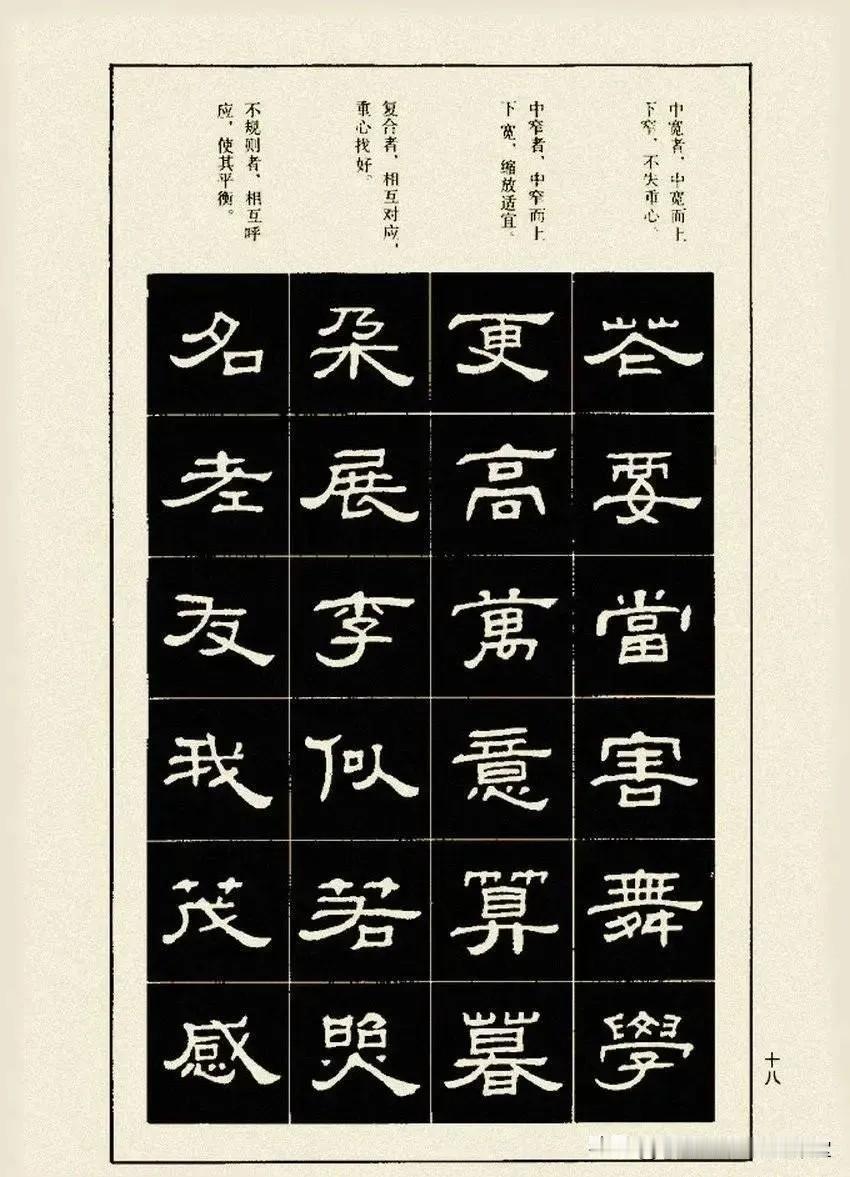 中宽者，中宽而上
下窄，不失重心。
中窄者，中窄而上
下宽，缩放适宜。
复合者，相互对应，
重心找好。
不规则者，相互呼
应，使其平衡。
要當害舞學
更高萬意算暮
朵展李似若
名友我茂感
十八